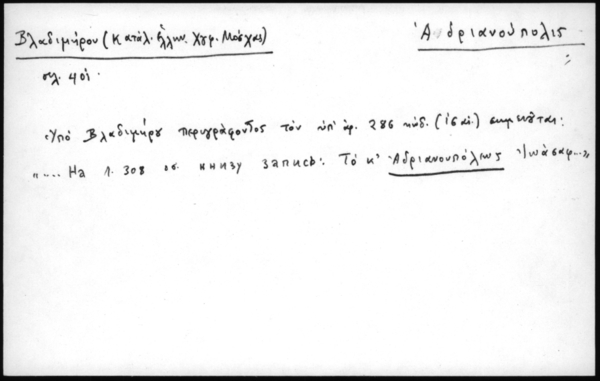 Βλαδιμήρου (Κατάλ. Ἑλλην. Χγρ. Μόσχας)
Ἀδριανούπολις
σελ. 401.
Ὑπὸ Βλαδιμήρου περιγράφοντος τὸν ὑπ' ἀρ. 286 κώδ. (ις αἰ.) σημειοῦται:
"... На л. 308 об. внизу запись: Τὸ κ' Ἀδριανουπόλεως Ἰωάσαφ..."